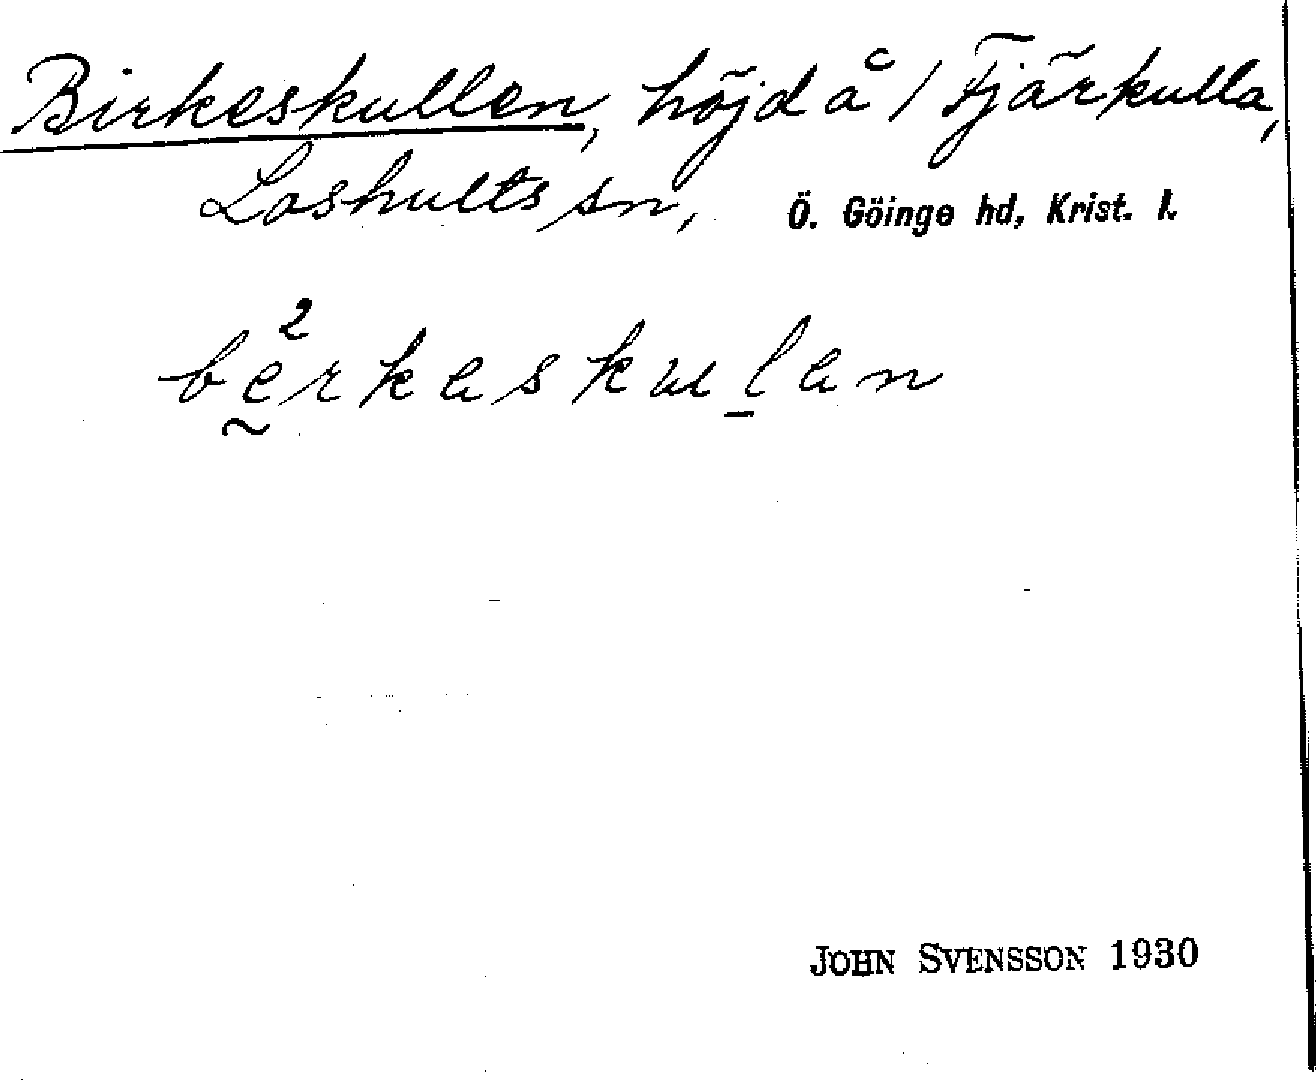 Birkeskullen, höjd å / Fjärkulla,
Loshults sn, Ö. Göinge hd, Krist. l.
bḛ̀rkeskul̠en
JOHN SVENSSON 1930